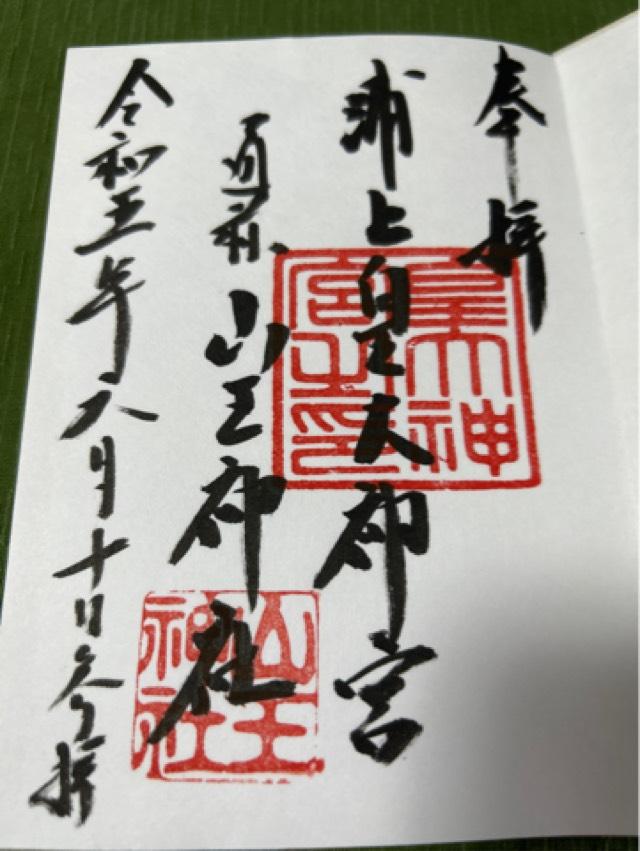 奉拝
浦上皇大神宮
皇大神
宮之印
山王神社
山王
神社
令和五年六月十日参拝